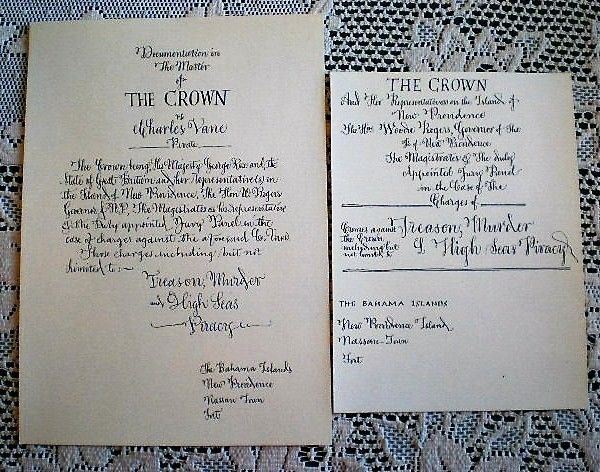 Documentation in
The Master
of
THE CROWN
vs
Charles Vane
Pirate
The Crown being The Majesty George Rex and the
State of Great Brittain and her Representatives in
the Island of New Providence, The Hon W Rogers
Governor The Magistrates as his representative
& the Duly appointed Jury Panel in the
case of charges against the aforesaid
Those charges including but not
limited to :~
Treason, Murder
and High Seas
Piracy
The Bahama Islands
New Providence
Nassau Town
Fort
THE CROWN
And Her Representatives on the Island of
New Providence
The Hon. Woode Rogers, Governor of The
Is of New Providence
The Magistrates & The Duly
Appointed Jury Panel
in the Case of The
Charges of
Comes against
the Crown
including but
not limited to
Treason, Murder
& High Seas Piracy
THE BAHAMA ISLANDS
New Providence Island
Nassau-Town
Fort